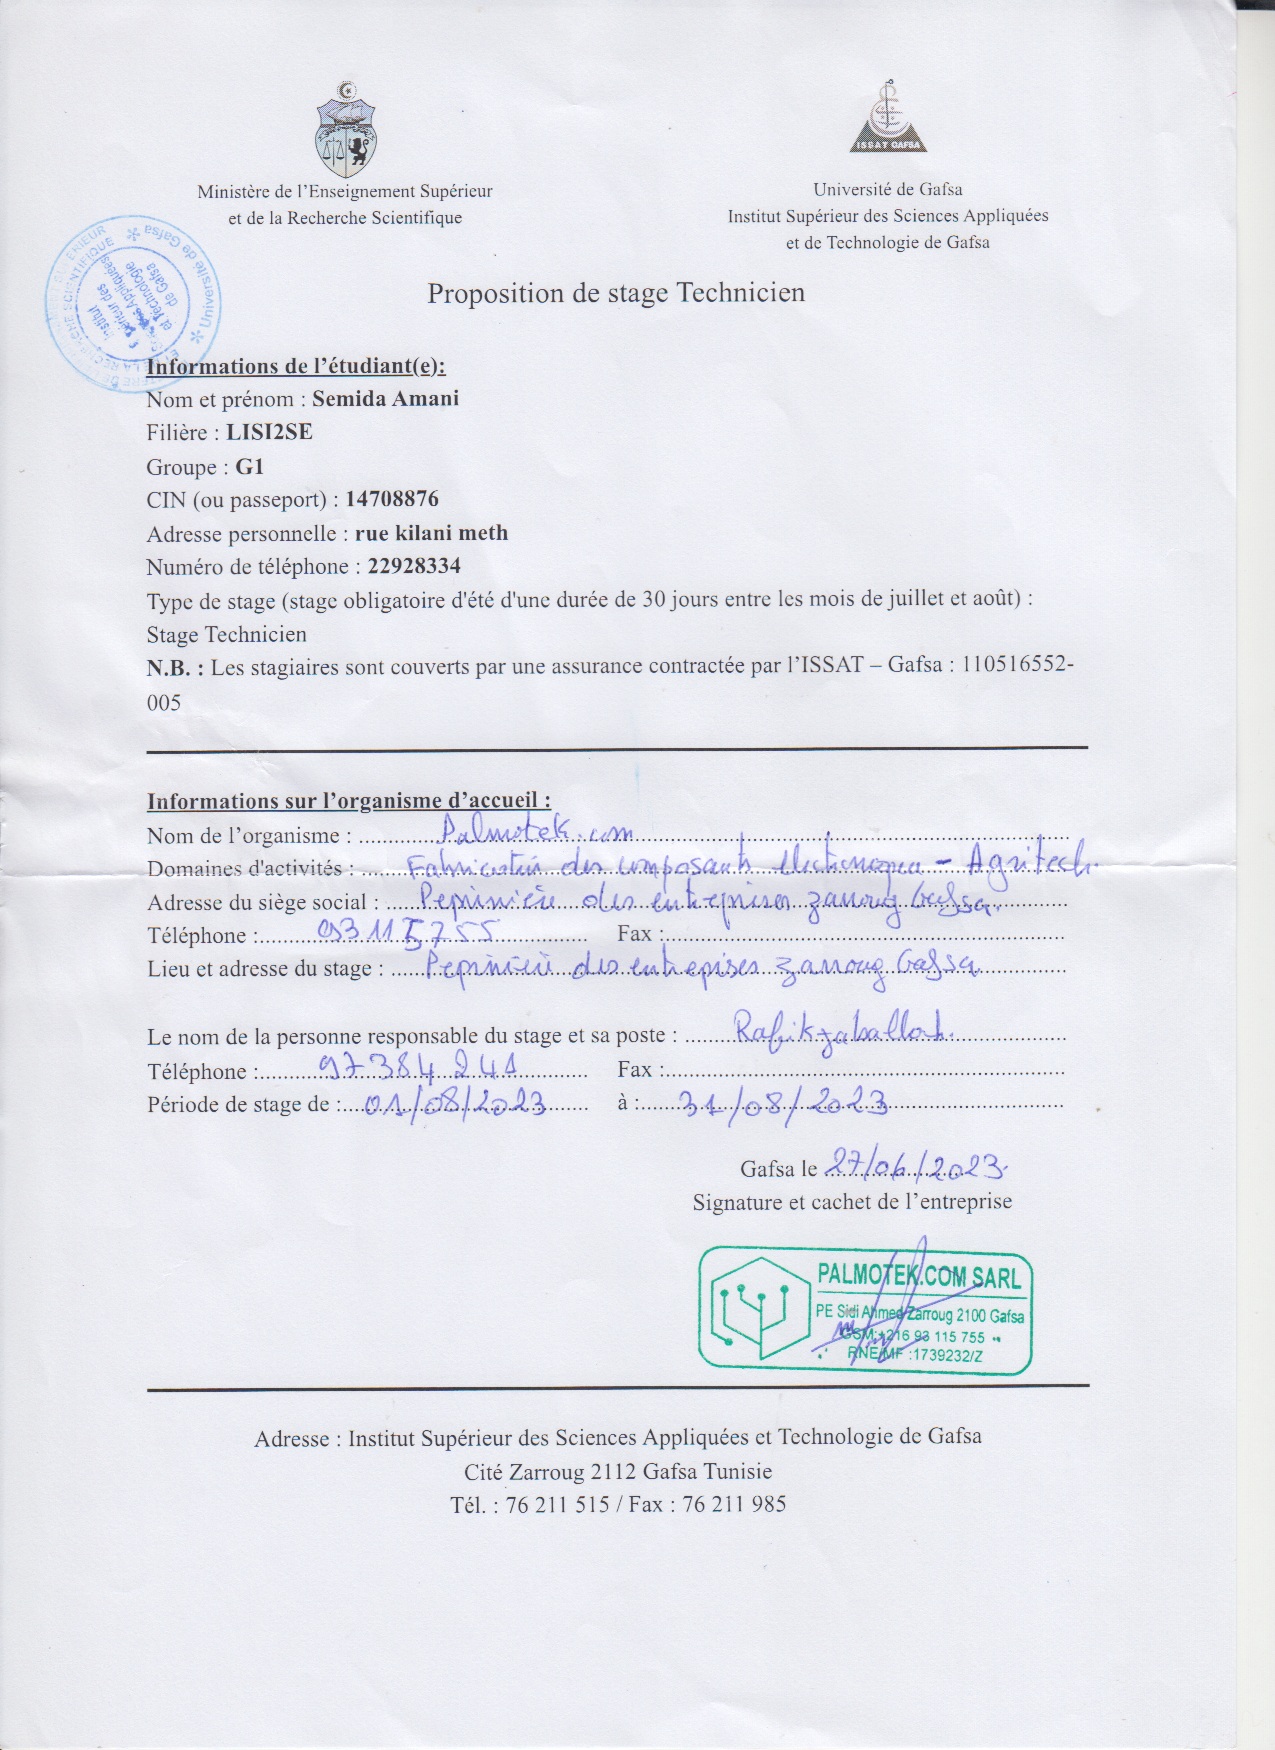 ISSAT GAFSA
Ministère de l'Enseignement Supérieur
et de la Recherche Scientifique
Université de Gafsa
Institut Supérieur des Sciences Appliquées
et de Technologie de Gafsa
Proposition de stage Technicien
Informations de l'étudiant(e):
Nom et prénom : Semida Amani
Filière : LISI2SE
Groupe : G1
CIN (ou passeport) : 14708876
Adresse personnelle : rue kilani meth
Numéro de téléphone : 22928334
Type de stage (stage obligatoire d'été d'une durée de 30 jours entre les mois de juillet et août) :
Stage Technicien
N.B. : Les stagiaires sont couverts par une assurance contractée par l'ISSAT – Gafsa : 110516552-
005
Informations sur l'organisme d'accueil :
Nom de l'organisme : Palmotek.com
Domaines d'activités : Fabrication des composants électroniques - Agritech
Adresse du siège social : Pepinière des entreprises zarroug Gafsa
Téléphone : 93115755 Fax :
Lieu et adresse du stage : Pepinière des entreprises zarroug Gafsa
Le nom de la personne responsable du stage et sa poste : Rafik
Téléphone : 97384241 Fax :
Période de stage de : 01/08/2023 à : 31/08/2023
Gafsa le 27/06/2023
Signature et cachet de l'entreprise
PALMOTEK.COM SARL
PE Sidi Ahmed Zarroug 2100 Gafsa
GSM:+216 93 115 755
RNE/MF :1739232/Z
Adresse : Institut Supérieur des Sciences Appliquées et Technologie de Gafsa
Cité Zarroug 2112 Gafsa Tunisie
Tél. : 76 211 515 / Fax : 76 211 985